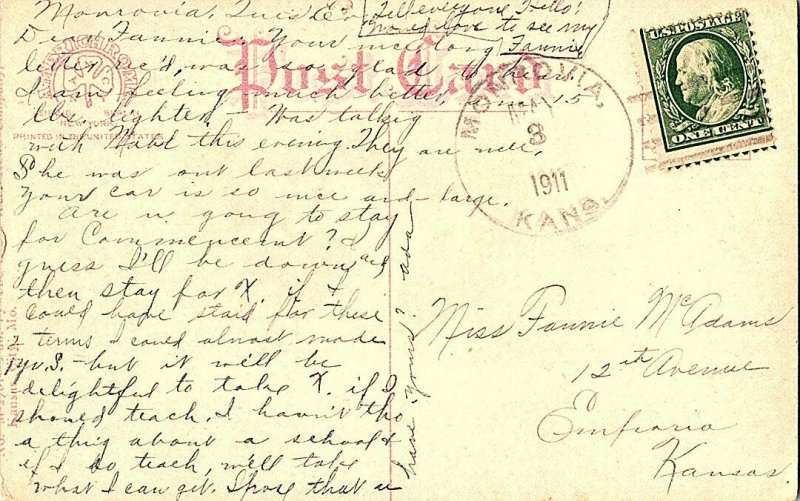 Monrovia, Tues Eve
Tell everyone "Hello"
wo'd love to see my
Fannie
Dear Fannie:- Your nice long
letter rec'd, was so glad to hear.
I am feeling much better, am 15
lbs. lighter,- Was talking
with Mabl this evening. They are well,
She was out last week
your car is so nice and large.
Are u going to stay
for Commencement? I
guess I'll be down and
then stay for X. if I
could have staid for these
2 terms I could almost made
1 yr. S. - but it will be
delightful to take X. if I
should teach. I havn't tho
a thing about a school &
if I do teach, will take
what I can get. I hope that u
have yours? Ada
Post Card
PRINTED IN THE UNITED STATES
Kansas City, Mo.
MONROVIA,
MAY
3
1911
KANS.
U.S. POSTAGE
ONE CENT
Miss Fannie McAdams
12th Avenue
Emporia
Kansas.